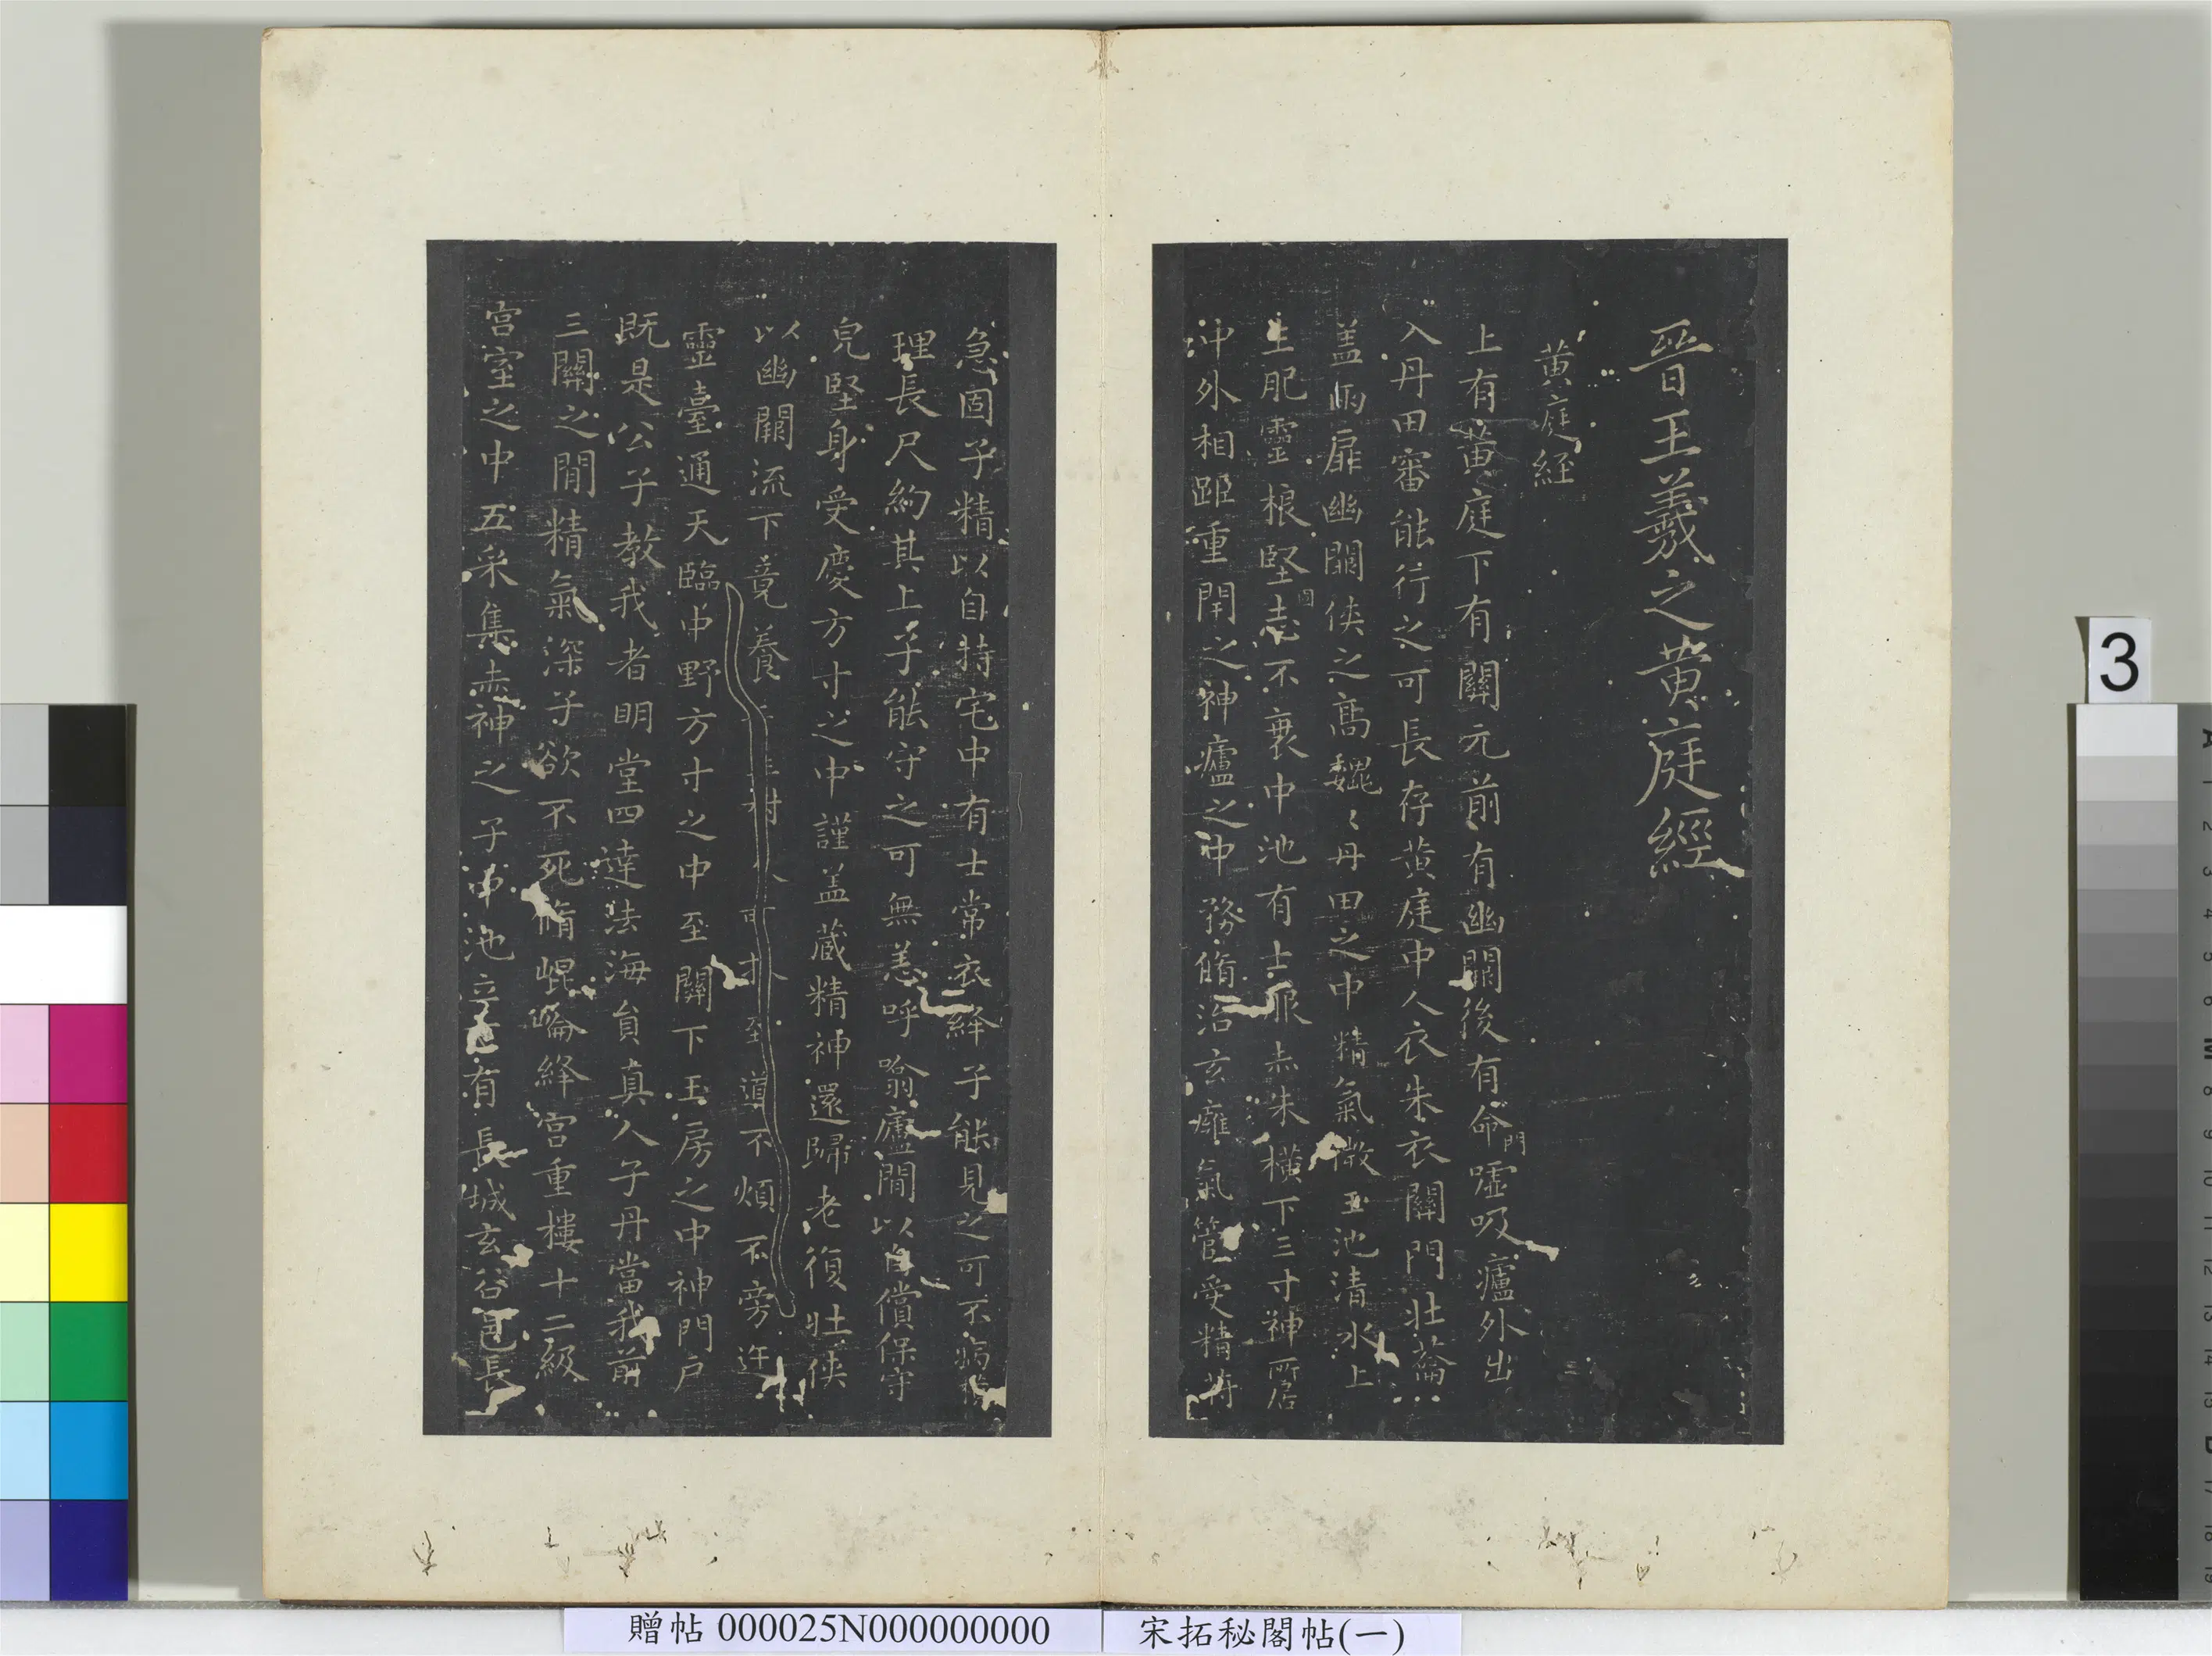 晉王羲之黃庭經
黃庭經
上有黃庭下有關元前有幽闕後有命門噓吸廬外出
入丹田審能行之可長存黃庭中人衣朱衣關門壯蘥
盖兩扉幽闕俠之高巍〻丹田之中精氣微玉池清水上
生肥靈根堅固志不衰中池有士服赤朱橫下三寸神所居
中外相距重閇之神廬之中務脩治玄癰氣管受精苻
急固子精以自持宅中有士常衣絳子能見之可不病橫
理長尺約其上子能守之可無恙呼噏廬間以自償保守
皃堅身受慶方寸之中謹盖藏精神還歸老復壯俠
以幽闕流下竟養 至道不煩不旁迕
靈臺通天臨中野方寸之中至關下玉房之中神門戶
既是公子教我者明堂四達法海員真人子丹當我前
三關之間精氣深子欲不死脩崐崘絳宮重樓十二級
宮室之中五采集赤神之子中池立下有長城玄谷邑長
3
贈帖 000025N000000000
宋拓秘閣帖(一)